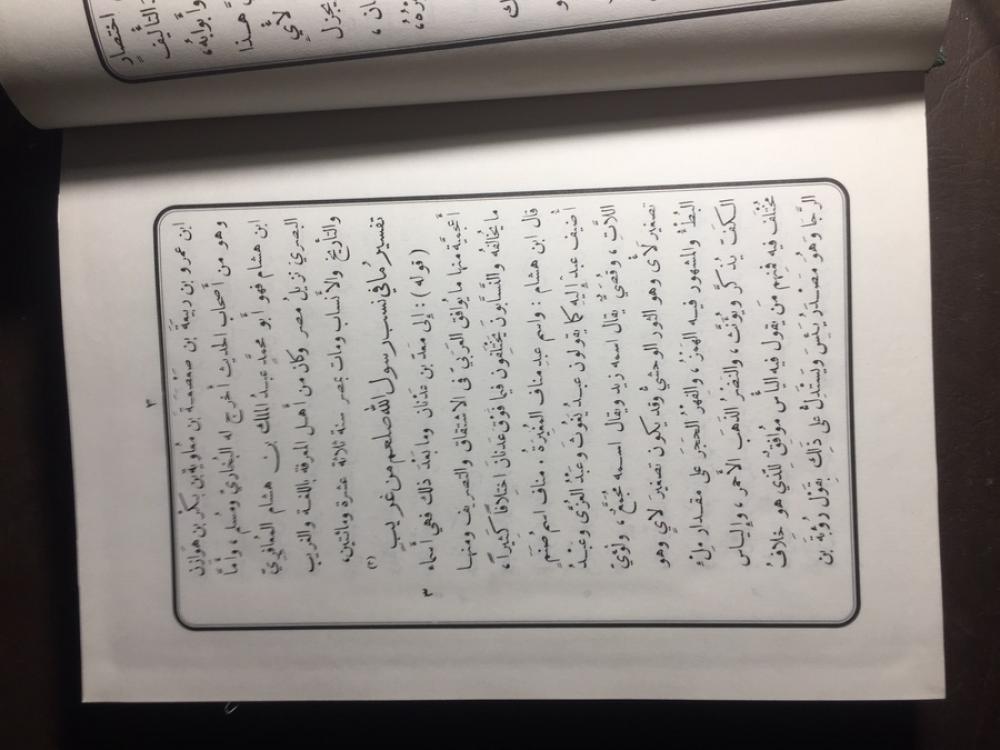 اختصار
التأليف
وأبوابه،
هذا
لأي
يجزل
ان،
٣
ابن عمرو بن ربيعة بن صعصعة بن معاوية بن بكر بن هوازن
وهو من أصحاب الحديث أخرج له البخاريّ ومسلم، وأمّا
ابن هشام فهو أبو محمّد عبد الملك بن هشام المعافريّ
البصري نزيل مصر وكان من أهل المعرفة باللغة والغريب
والتأريخ والأنساب ومات بمصر سنة ثلاثة عشرة ومائتين،
تفسير ما في نسب رسول الله صلعم من غريب (٢)
(قوله): إلى معد بن عدنان وما بعد ذلك فهي أسماء ٣
أعجميّة منها ما يُوافق العربيّ في الاشتقاق والتصريف ومنها
ما يخالفه والنسّابون يختلفون فيما فوق عدنان اختلافًا كثيرًا،
قال ابن هشام: واسم عبد مناف المُغيرة، مناف اسم صنم
أضيف عبد إليه كما يقولون عبد يغوث وعبد العزّى وعبد
اللات، وقُصَيّ يقال اسمه زيد ويقال اسمه مُجَمّع، ولُؤيّ
تصغير لأى وهو الثور الوحشيّ وقد يكون تصغير لأي وهو
البُطْءُ والمشهور فيه الهمز، والفهر الحجر على مقدار ملء
الكفّ يُذكّر ويؤنّث، والنضر الذهب الأحمر، وإلياس
مختلف فيه فمنهم من يقول فيه الياس مُوافق للّذي هو خلافُ
الرّجا وهو مصدر يئس ويستدلّ على ذلك بقول رؤبة بن